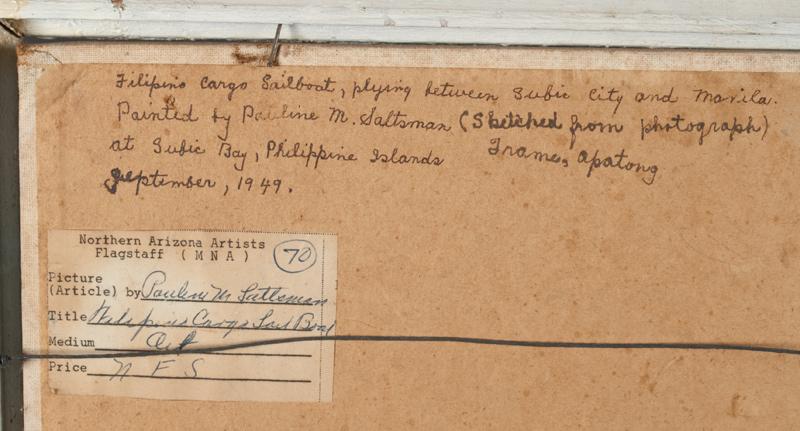 Filipino Cargo Sailboat, plying between Subic City and Manila.
Painted by Pauline M. Saltsman (Sketched from photograph)
at Subic Bay, Philippine Islands Frame, apatong
September, 1949.
Northern Arizona Artists
Flagstaff ( M N A ) 70
Picture
(Article) by Pauline M Saltsman
Title Filipino Cargo Sail Boat
Medium Oil
Price N F S